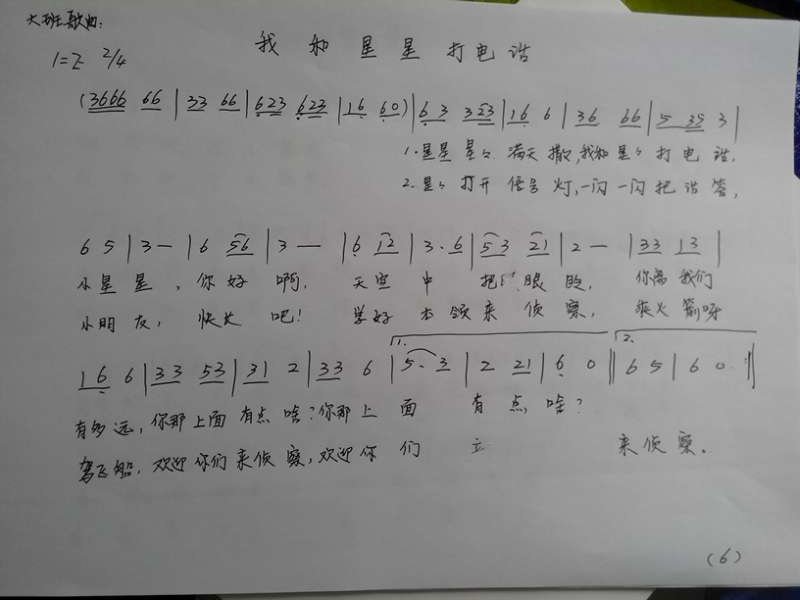 大班歌曲:
我和星星打电话
1=Z 2/4
(3666 66 | 33 66 | 623 623 | 16 60) | 63 323 | 16 6 | 36 66 | 5 35 3 |
1.星星星々满天撒,我和星々打电话.
2.星々打开信号灯,一闪一闪把话答,
6 5 | 3 — | 6 56 | 3 — | 6 12 | 3. 6 | 53 21 | 2 — | 33 13 |
小星星,你好啊,天空中把眼眨,你离我们
小朋友,快长吧!学好本领来侦察,乘火箭呀
1. 2.
16 6 | 33 53 | 31 2 | 33 6 | 5. 3 | 2 21 | 6 0 || 6 5 | 6 0 :||
有多远,你那上面有点啥?你那上面有点啥?
驾飞船,欢迎你们来侦察,欢迎你们来侦察.
(6)